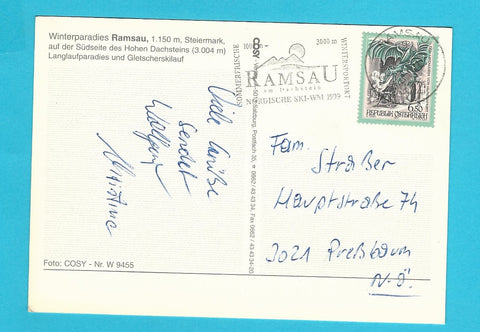 Winterparadies Ramsau, 1.150 m, Steiermark,
auf der Südseite des Hohen Dachsteins (3.004 m)
Langlaufparadies und Gletscherskilauf
Viele Grüße
sendet
Wolfgang
Christina
Foto: COSY - Nr. W 9455
COSY
Salzburg, Postfach 35,
0662/43 43 34, Fax 0662/43 43 34-20
SOMMERFRISCHE
3000 m
WINTERSPORTORT
RAMSAU
am Dachstein
NORDISCHE SKI-WM 1999
6.50
REPUBLIK ÖSTERREICH
Fam.
Straßer
Hauptstraße 74
3021 Preßbaum
N.Ö.